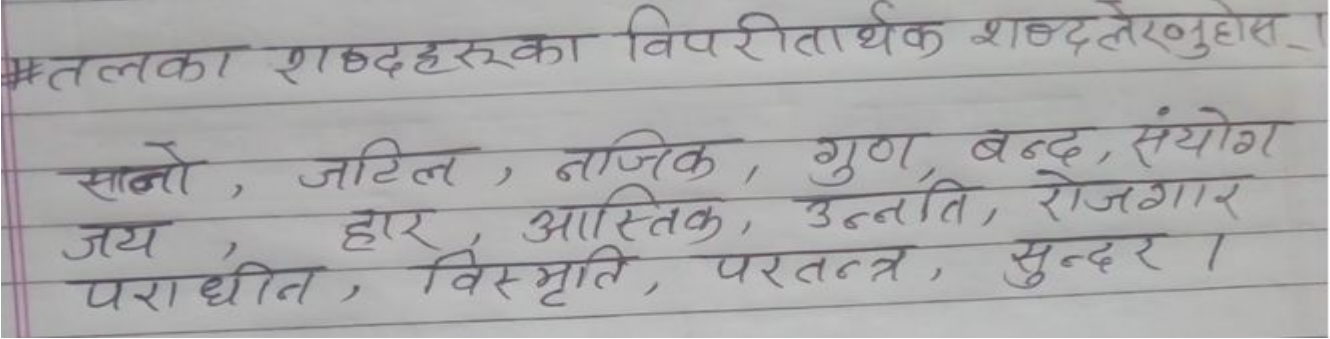 #तलका शब्दहरूका विपरीतार्थक शब्द लेख्नुहोस ।
सानो , जटिल , नजिक , गुण, बन्द, संयोग
जय , हार , आस्तिक, उन्नति, रोजगार
पराधीन , विस्मृति, परतन्त्र, सुन्दर ।